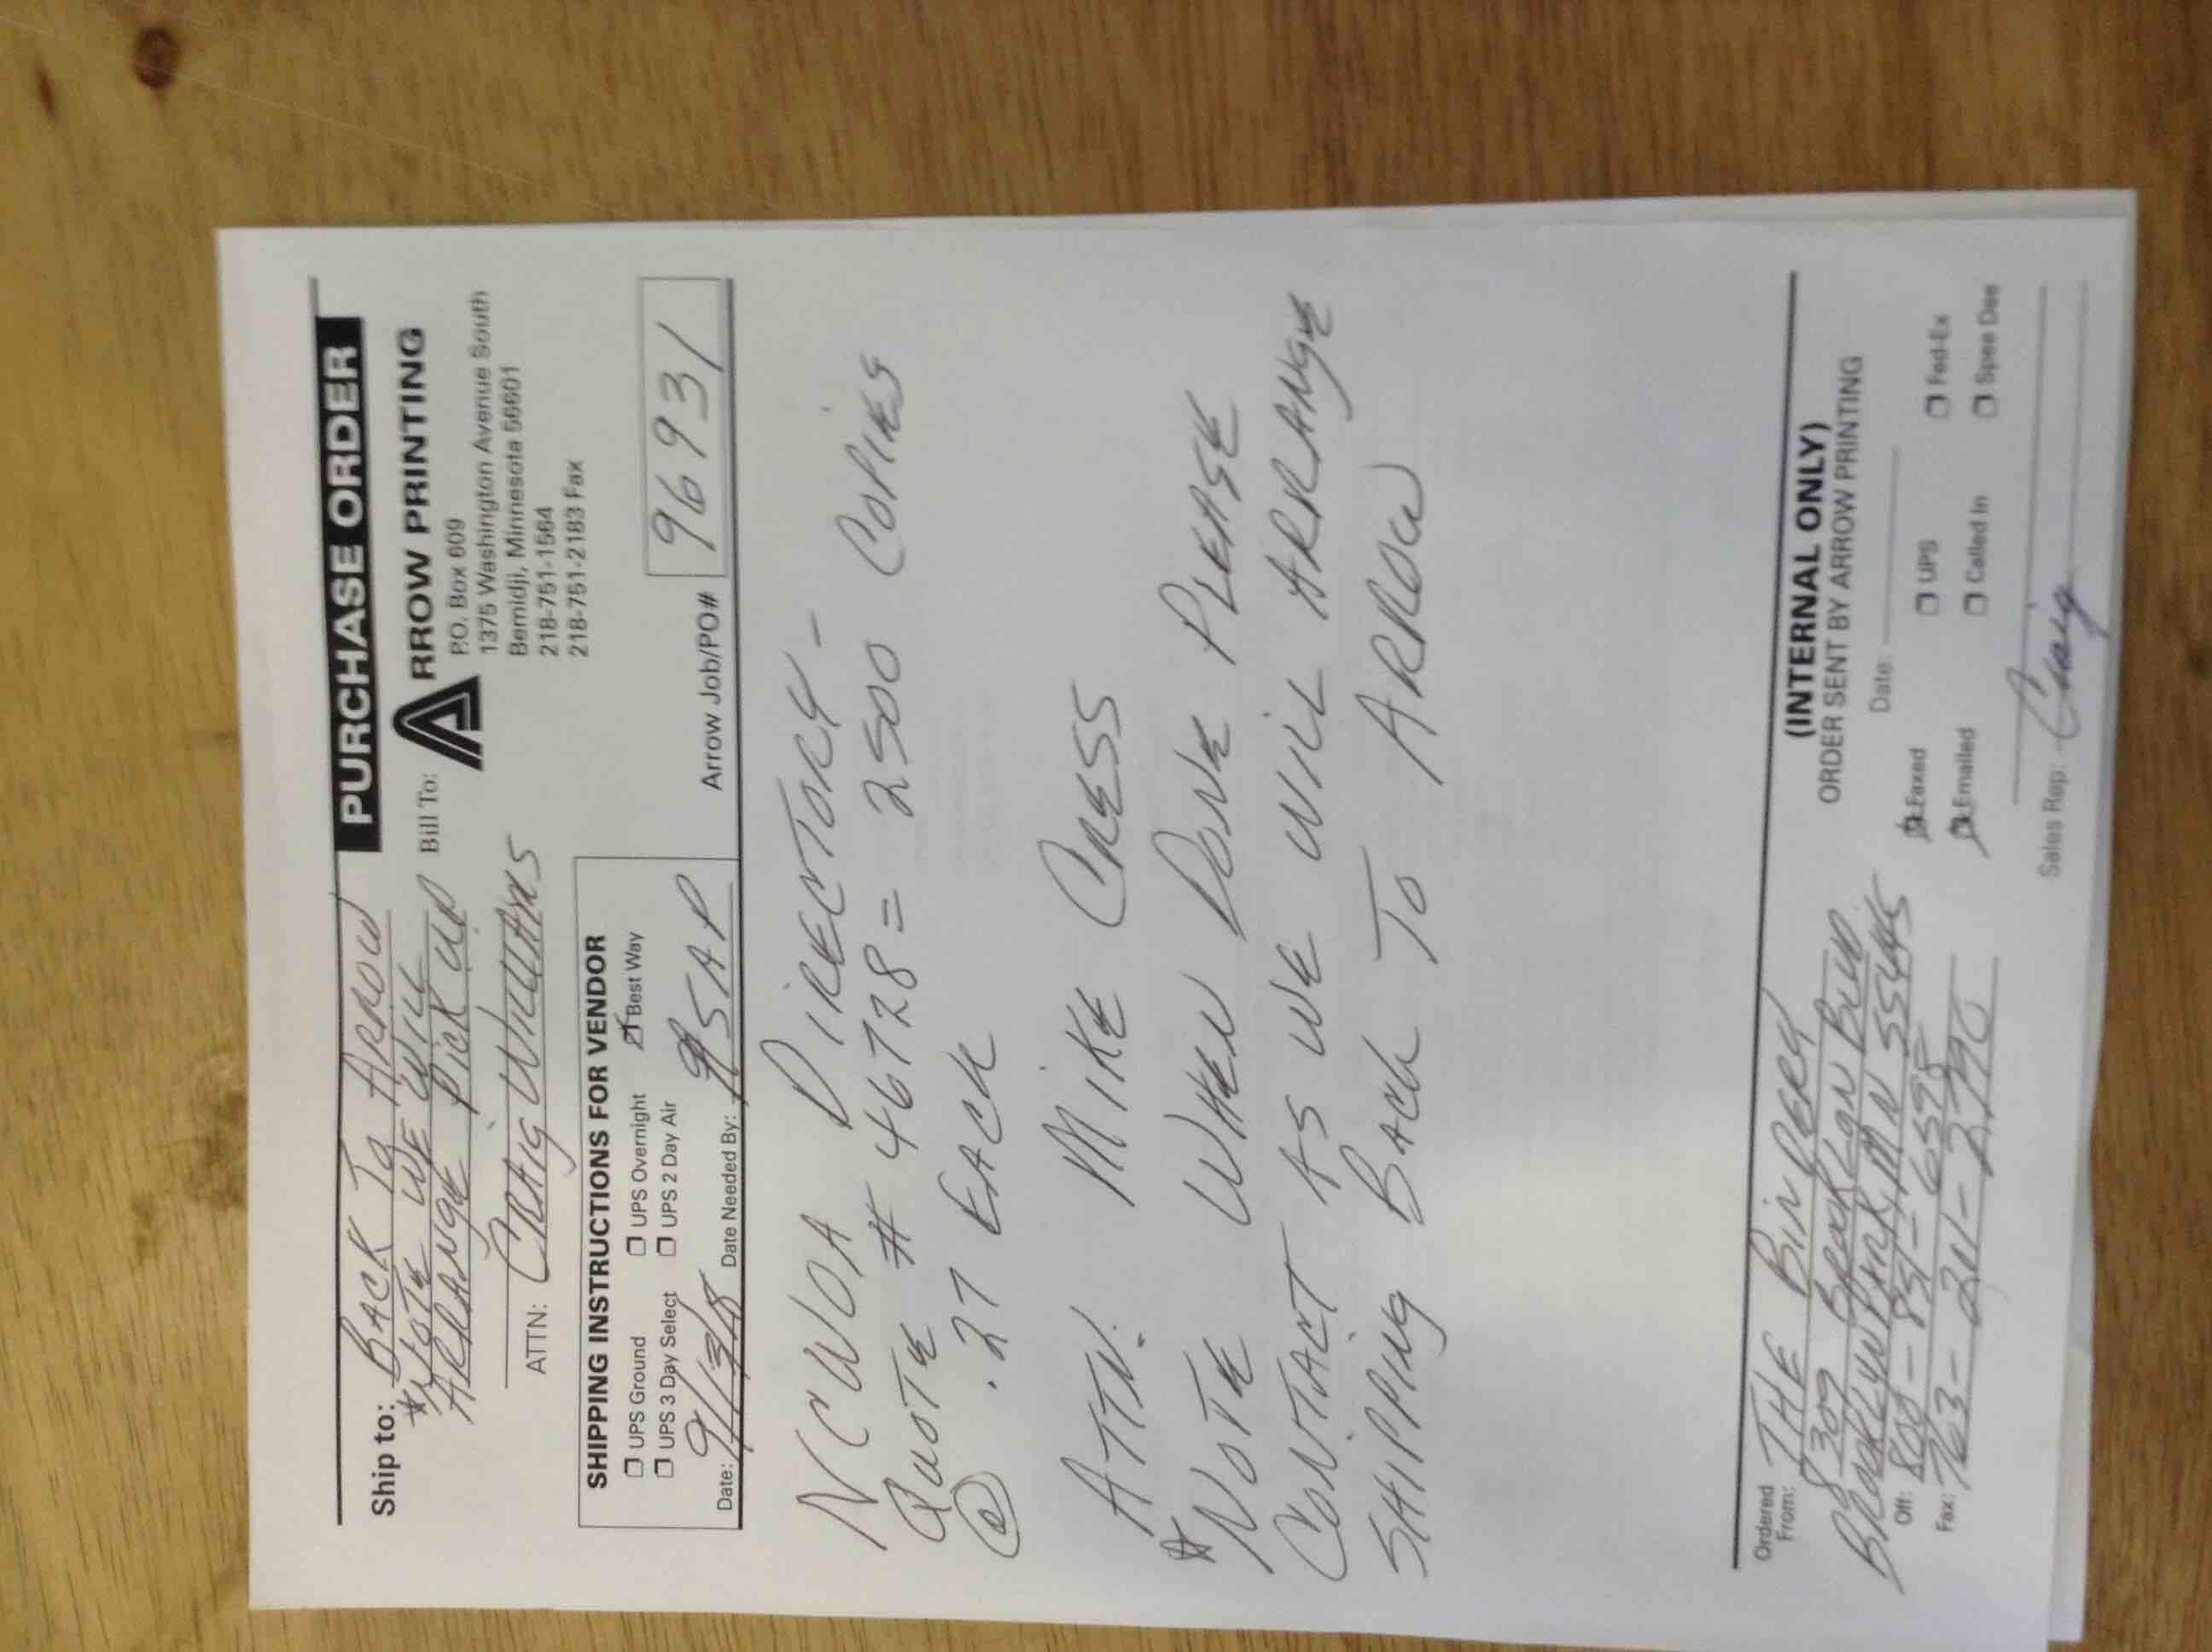 PURCHASE ORDER
Ship to: BACK TO ARROW
* NOTE WE WILL
ARRANGE PICK UP
ATTN: CRAIG WILLIAMS
Bill To:
ARROW PRINTING
P.O. Box 609
1375 Washington Avenue South
Bemidji, Minnesota 56601
218-751-1564
218-751-2183 Fax
SHIPPING INSTRUCTIONS FOR VENDOR
UPS Ground UPS Overnight Best Way
UPS 3 Day Select UPS 2 Day Air
Date: 9/13/18 Date Needed By: ASAP
Arrow Job/PO# 96931
NCWOA DIRECTORY -
QUOTE # 46728 = 2500 COPIES
@ .27 EACH
ATTN: MIKE CRESS
* NOTE WHEN DONE PLEASE
CONTACT AS WE WILL ARRANGE
SHIPPING BACK TO ARROW
Ordered From: THE BINDERY
8309 BROOKLYN BLVD
BROOKLYN PARK MN 55445
Off: 800-851-6598
Fax: 763-201-2790
(INTERNAL ONLY)
ORDER SENT BY ARROW PRINTING
Date:
Faxed UPS Fed-Ex
Emailed Called In Spee Dee
Sales Rep: Craig